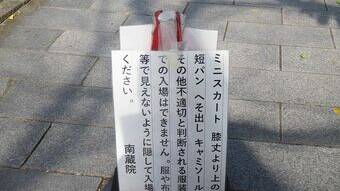 ミニスカート 膝丈より上の
短パン へそ出し キャミソール
その他不適切と判断される服装
での入場はできません。服や布
等で見えないように隠して入場
ください。
南蔵院